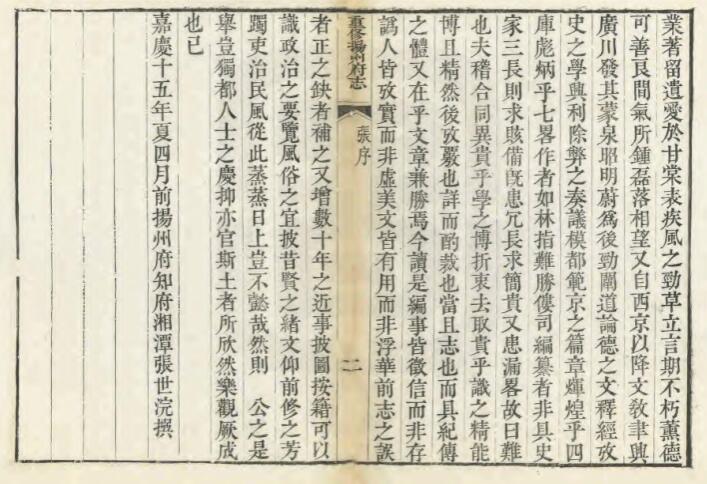 業著留遺愛於甘棠表疾風之勁草立言期不朽薰德
可善良間氣所鍾磊落相望又自西京以降文敎聿興
廣川發其蒙泉昭明蔚為後勁闡道論德之文釋經攷
史之學興利除弊之奏議模都範京之篇章輝煌乎四
庫彪炳乎七畧作者如林指難勝僂司編纂者非具史
家三長則求賅備旣患冗長求簡貴又患漏畧故曰難
也夫稽合同異貴乎學之博折衷去取貴乎識之精能
博且精然後攷嚴也詳而酌裁也當且志也而具紀傳
之體又在乎文章兼勝焉今讀是編事皆徵信而非存
譌人皆攷實而非虛美文皆有用而非浮華前志之誤
重修揚州府志
張序
二
者正之缺者補之又增數十年之近事披圖按籍可以
識政治之要覽風俗之宜披昔賢之緒文仰前修之芳
躅吏治民風從此蒸蒸日上豈不懿哉然則 公之是
舉豈獨都人士之慶抑亦官斯土者所欣然樂觀厥成
也已
嘉慶十五年夏四月前揚州府知府湘潭張世浣撰